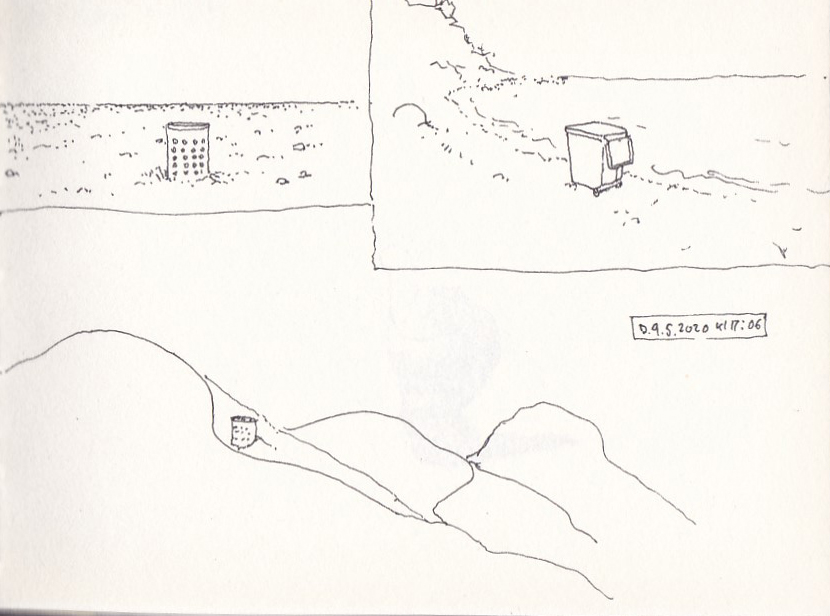 D.9.5.2020 kl 17:06